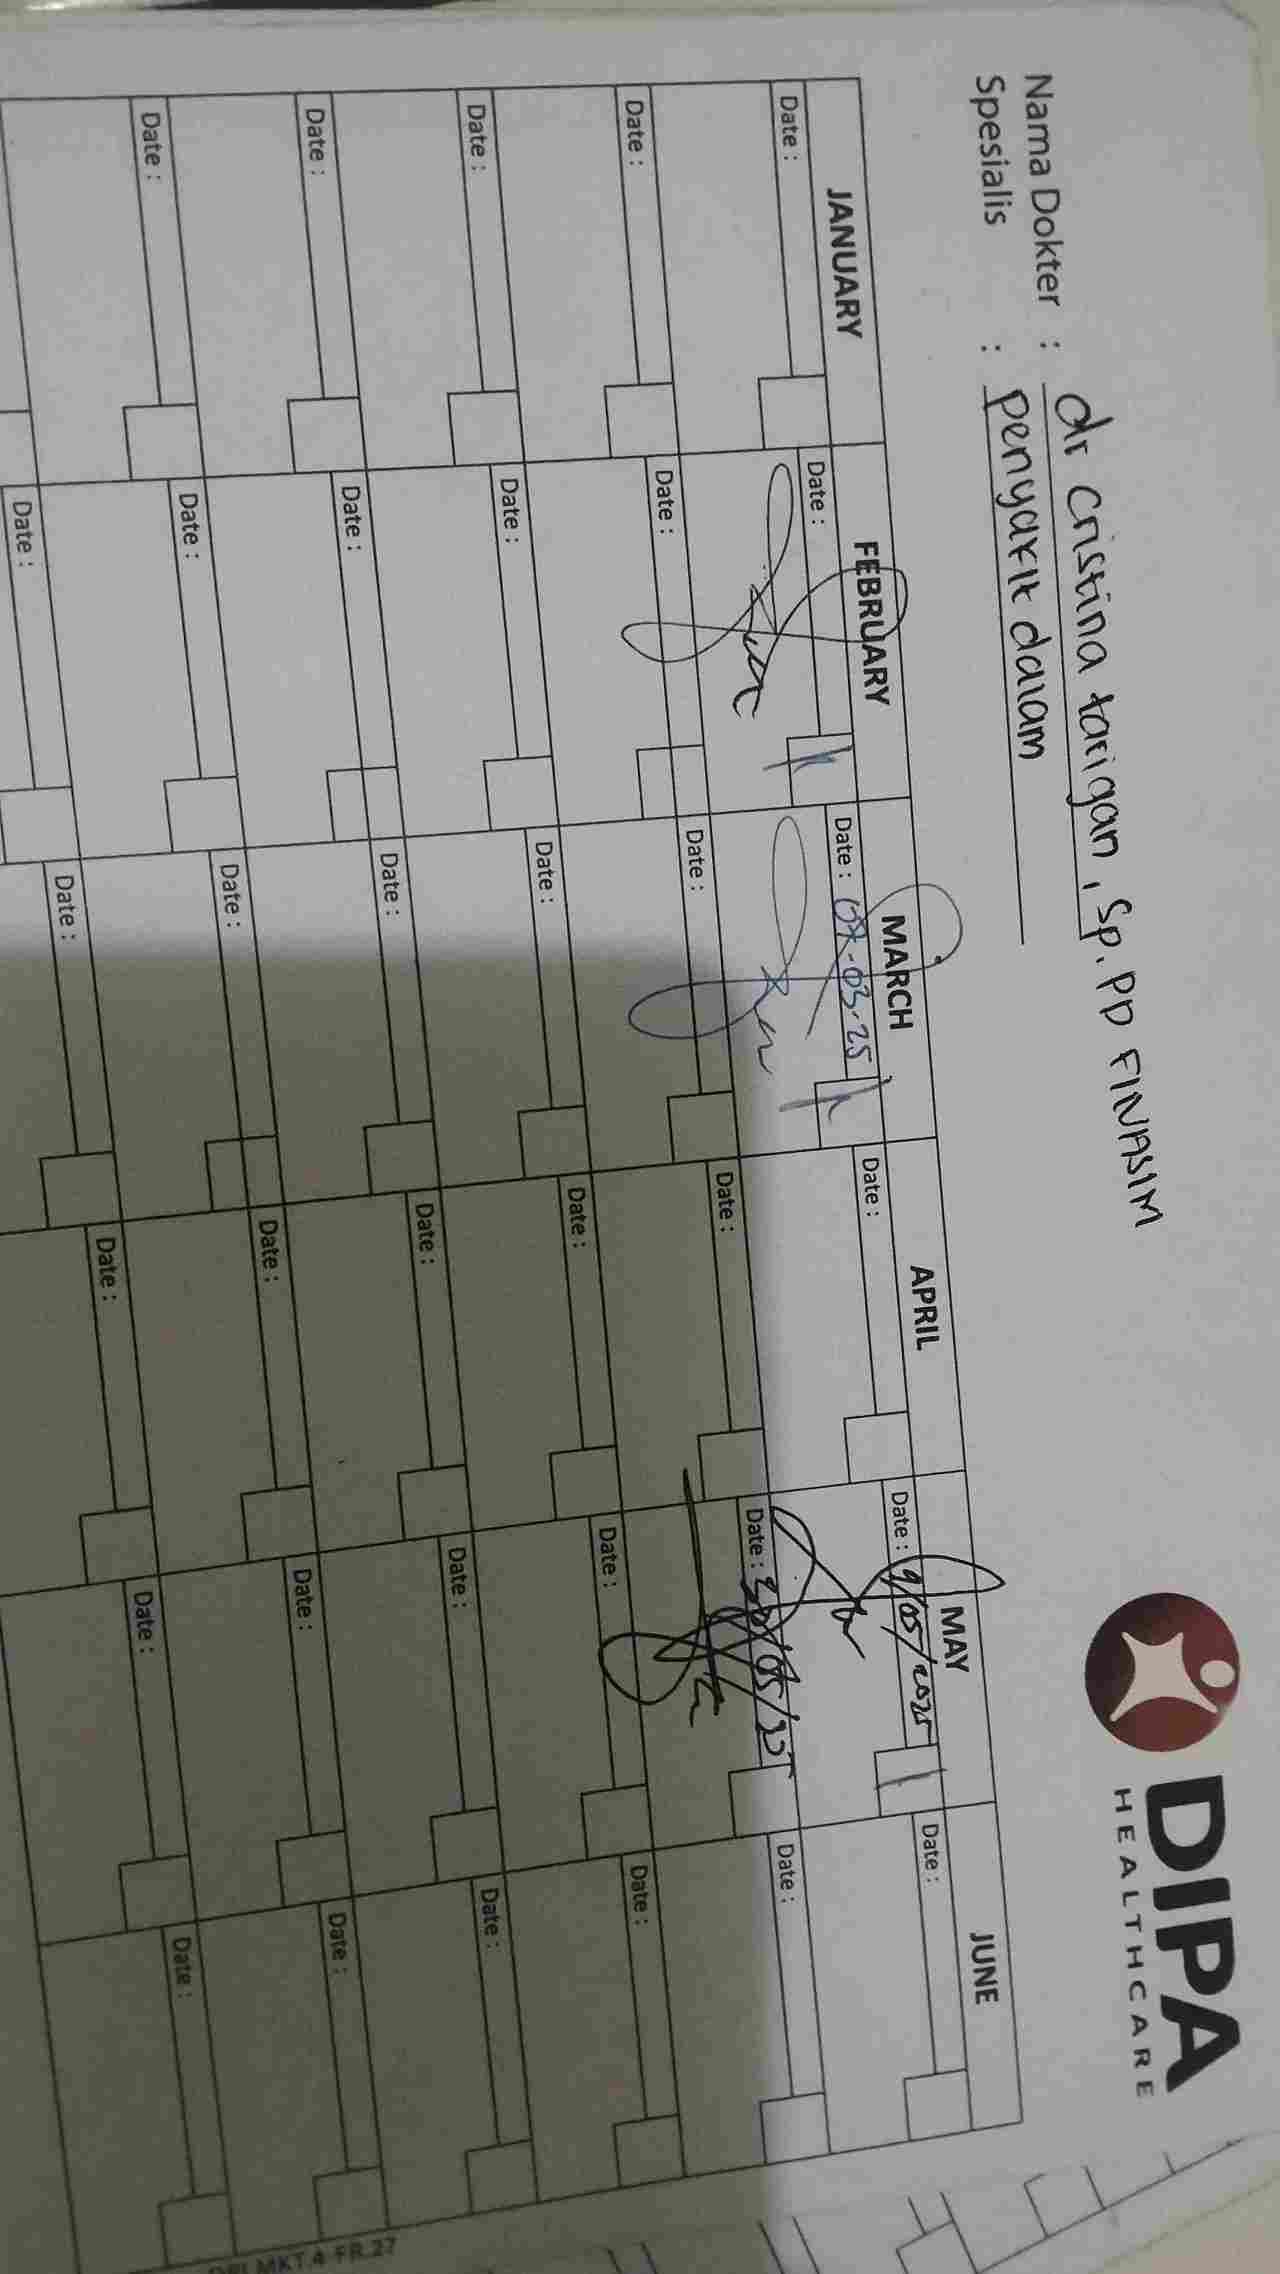 DIPA
HEALTHCARE
Nama Dokter : dr cristina tarigan, Sp. PD FINASIM
Spesialis : penyakit dalam
JANUARY FEBRUARY MARCH APRIL MAY JUNE
Date : Date : Date : 07-03-25 Date : Date : 9/05/2025 Date :
Date : Date : Date : Date : Date : 30/05/25 Date :
Date : Date : Date : Date : Date : Date :
Date : Date : Date : Date : Date : Date :
Date : Date : Date : Date : Date : Date :
Date : Date : Date : Date : Date :
MKT.4-FR.27